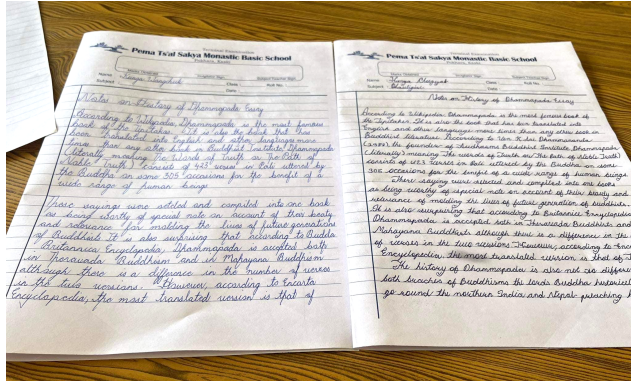 Pema Ts'al Sakya Monastic Basic School
Name
Subject
Class
Roll No.
Date
Notes on History of Dhammapada Essay
According to Wikipedia, Dhammapada is the most famous
book of the Tipitakas. It is also the book that has
been translated into English and other languages more
times than any other book in Buddhist Institute, Dhammapada
literally meaning The Words of Truth or The Path of
the Buddha on some 305 occasions for the benefit of a
wide range of human beings
These sayings were selected and compiled into one book
as being worthy of special note on account of their beauty
and relevance for molding the lives of future generations
of Buddhists. It is also surprising that according to
Britannica Encyclopedia, Dhammapada is accepted both
in Theravada Buddhism and in Mahayana Buddhism
although there is a difference in the number of verses
in the two versions. However, according to Encarta
Encyclopaedia, the most translated version is that of
Pema Ts'al Sakya Monastic Basic School
Name
Subject
Class
Roll No.
Date
Notes on History of Dhammapada Essay
According to Wikipedia Dhammapada is the most famous book of
the Tipitakas. It is also the book that has been translated into
English and other languages more times than any other book in
Buddhist literature. According to
the founder of Buddhist Institute, Dhammapada
(literally) meaning The words of Truth or The Path of
consists of 423 verses in Pali uttered by the Buddha on some
305 occasions for the benefit of a wide range of human beings
These saying were selected and compiled into one books
as being worthy of special note on account of their beauty and
relevance of molding the lives of future generation of buddhists.
It is also surprising that according to Britannica Encyclopedia
Dhammapada is accepted both in Theravada Buddhism and
Mahayana Buddhists although there is a difference in the
of verses in the two versions. However, according to
Encyclopedia. The most translated version is that of
The history of Dhammapada is also not so
both branches of Buddhisms the lords Buddha
go round the northern India and Nepal preaching